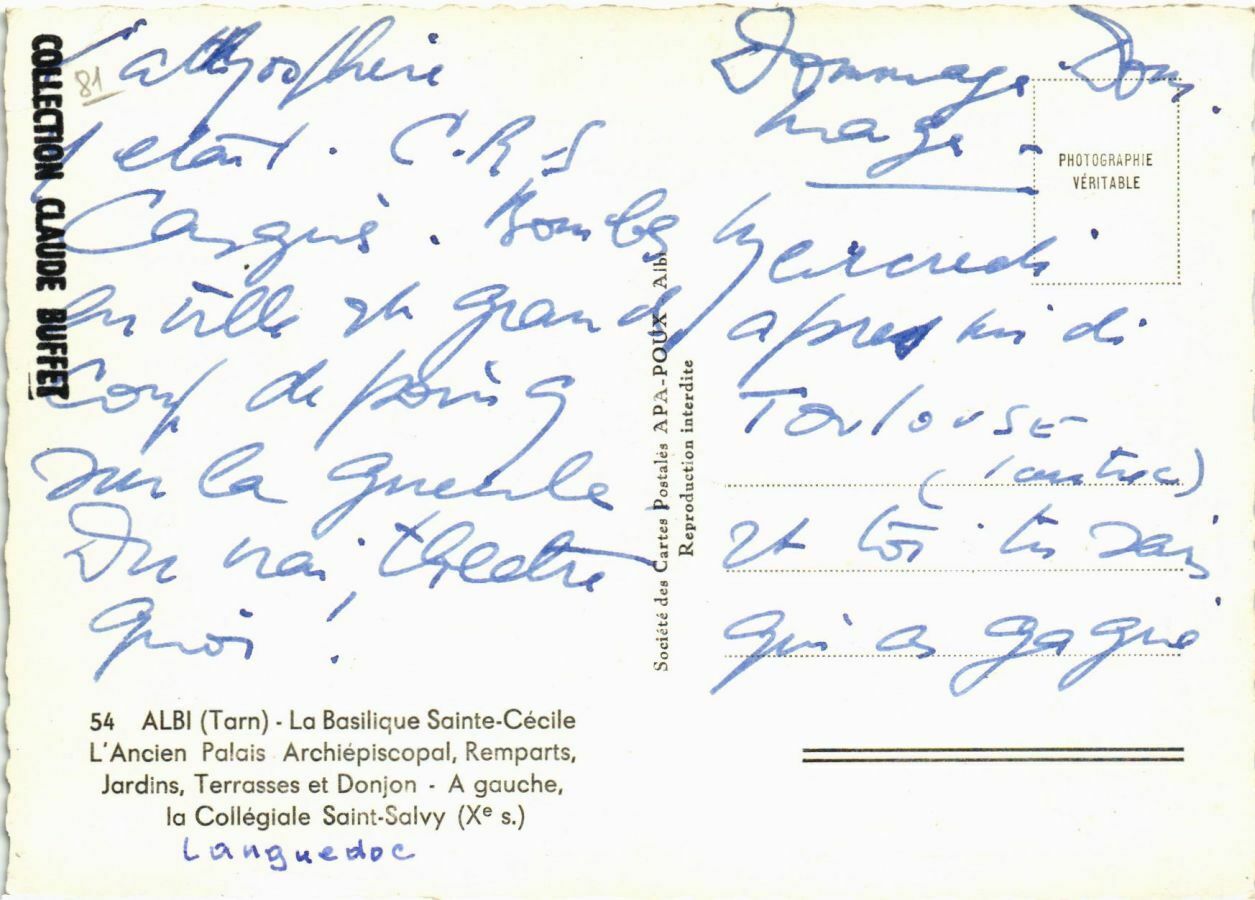 COLLECTION CLAUDE BUFFET
81
L'athmosphere
y etait. C.R.S
Casqués. Bombes
en ville et grand
coup de poing
sur la gueule
Du vrai théatre
quoi !
54 ALBI (Tarn) - La Basilique Sainte-Cécile
L'Ancien Palais Archiépiscopal, Remparts,
Jardins, Terrasses et Donjon - A gauche,
la Collégiale Saint-Salvy (Xe s.)
Languedoc
Société des Cartes Postales APA-POUX Albi
Reproduction interdite
Dommage. Dom
mage -
PHOTOGRAPHIE
VÉRITABLE
Mercredi
apres midi
TOULOUSE
et toi tu sais
qui as gagné